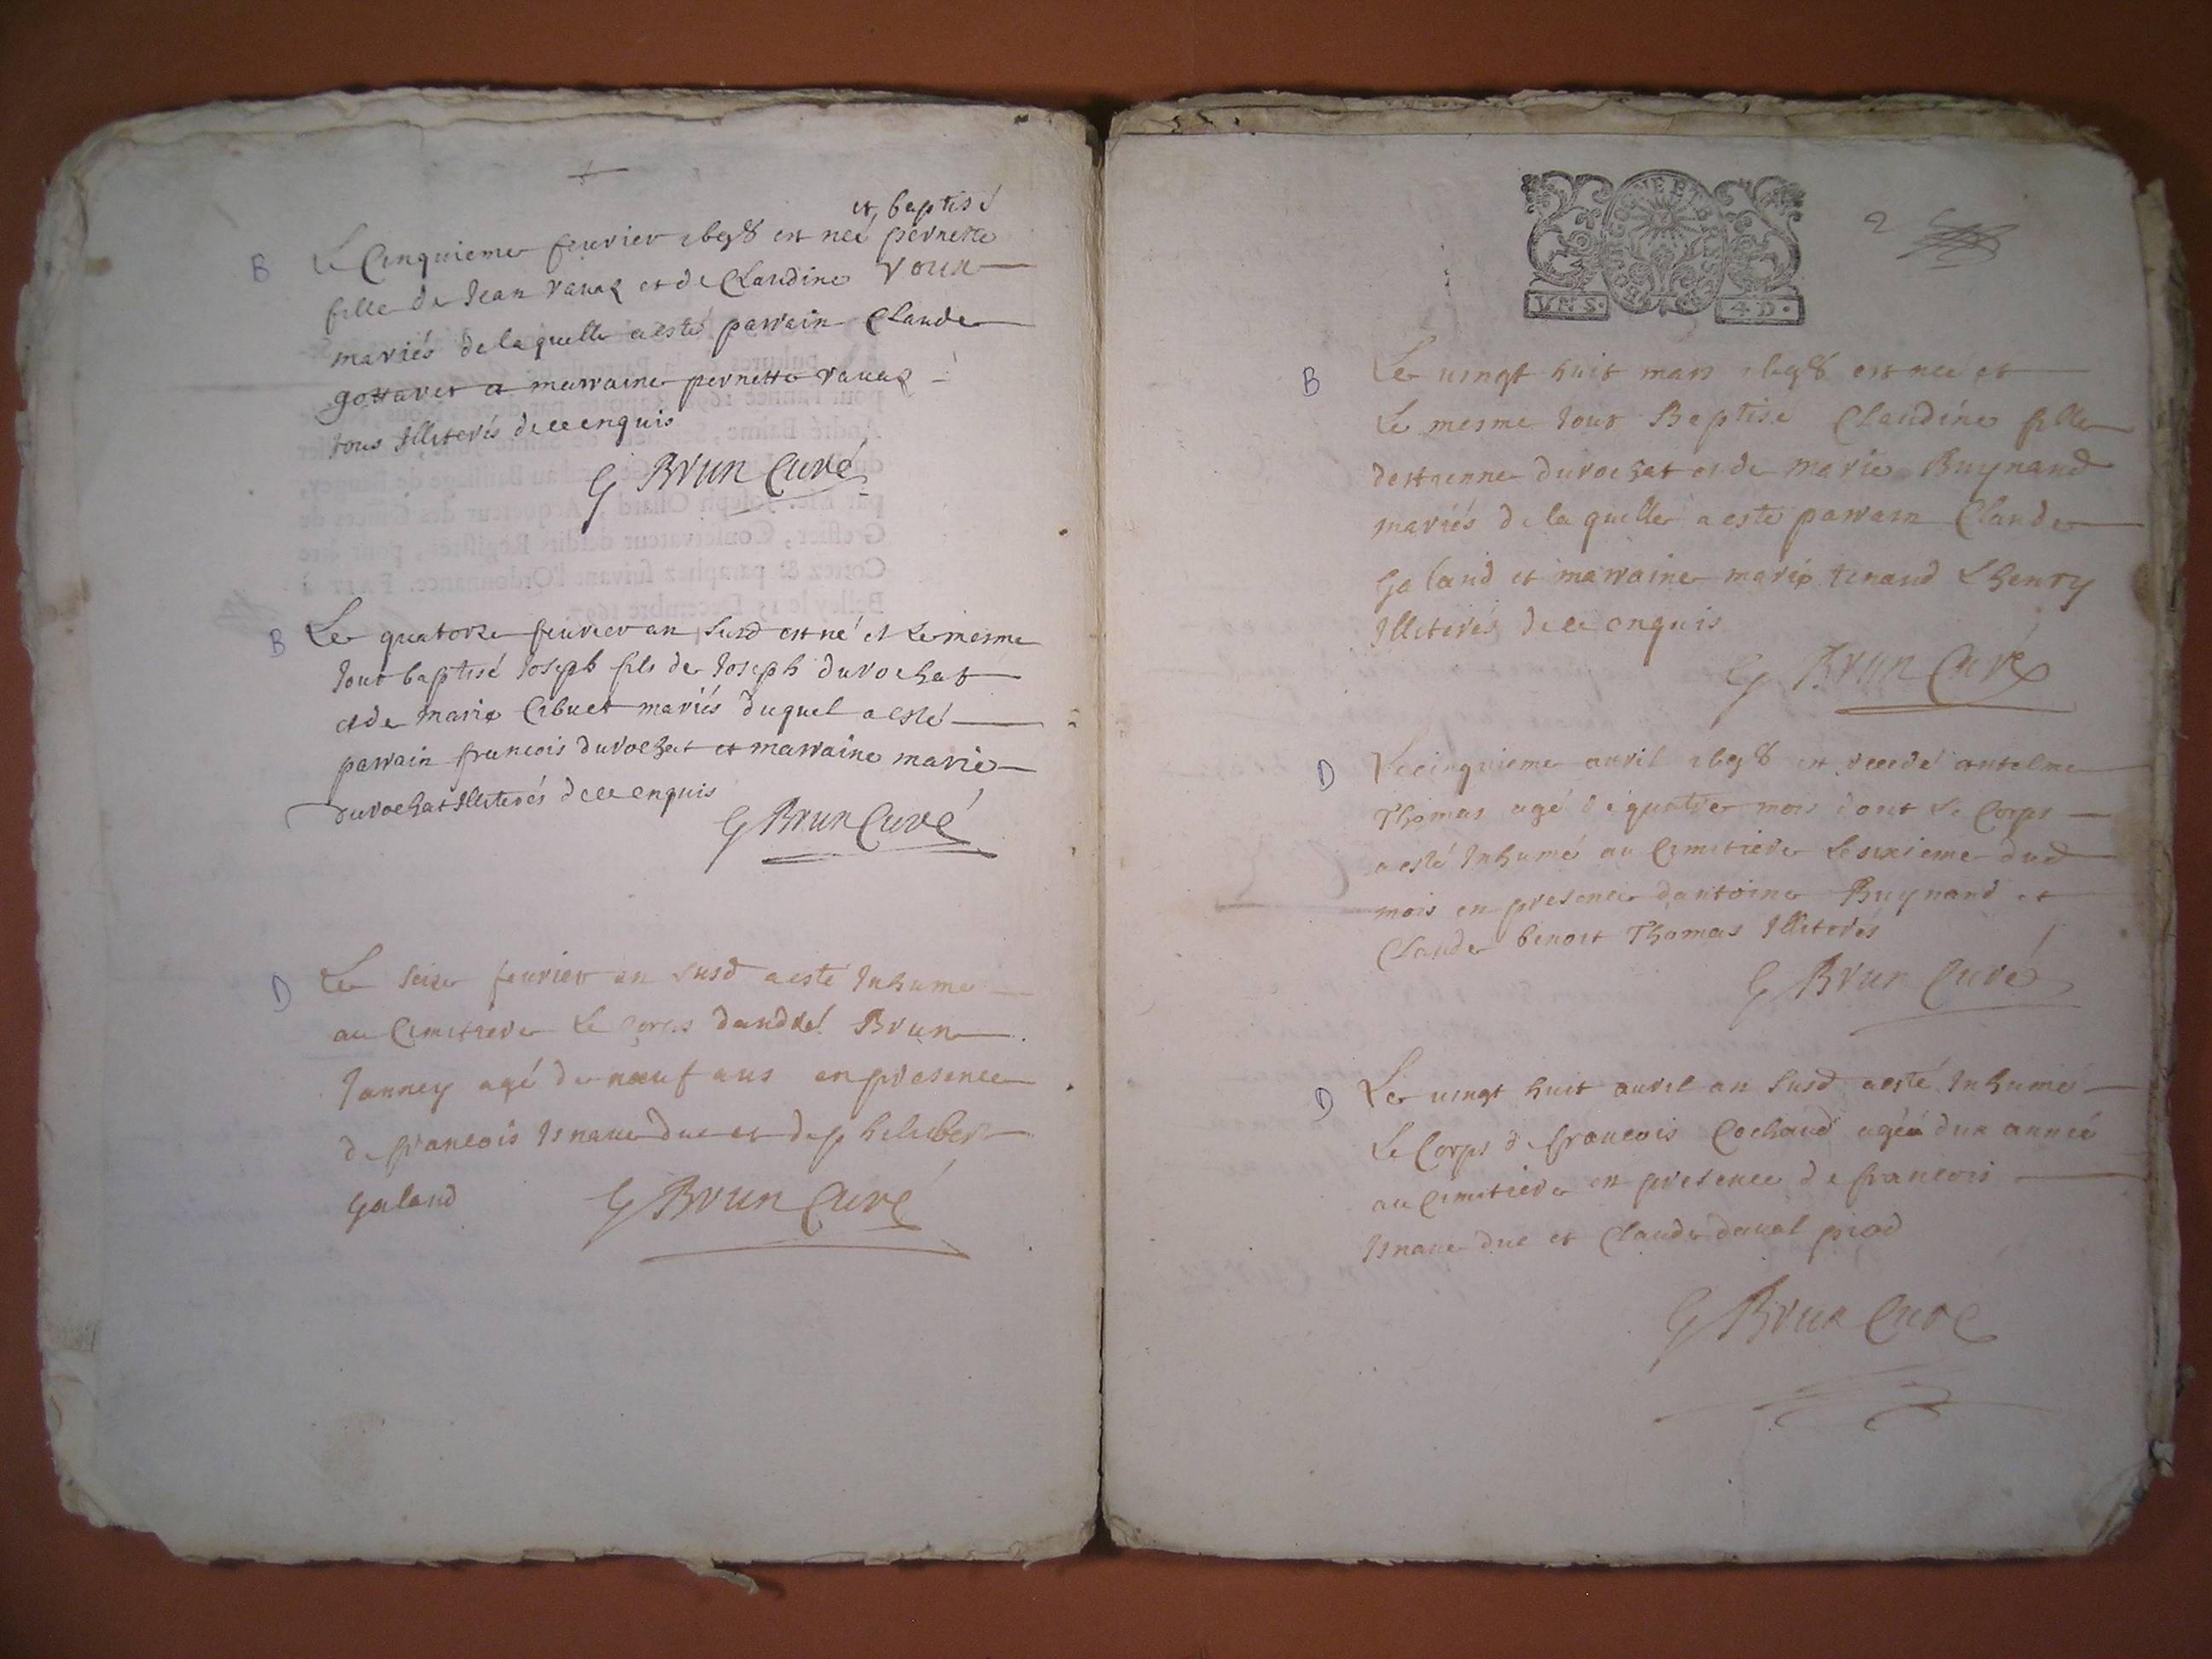 et baptisé
B Le Cinquieme feurier 1698 est neé pernette
fille de Jean rauaz et de Claudine roux
mariés de laquelle a esté parrain Claude
gottaret et marraine pernette rauaz
tous Illiterés de ce enquis
G Brun Curé
B Le quatorze feurier an susd est né et le mesme
Jour baptisé Joseph fils de Joseph durochat
et de marie Cibuet mariés duquel a esté
parrain francois durochat et marraine marie
durochat Illiterés de ce enquis
G Brun Curé
D Le seize feurier an susd a esté Inhume
au Cimitiere Le Corps dandré Brun
Janney agé de neuf ans en presence
de francois Isnaue duc et de philiber
Galand
G Brun Curé
2
VN S.
4 D.
B Le uingt huit mars 1698 est neé et
Le mesme Jour Baptisé Claudine fille
destienne durochat et de marie Buynand
mariés de laquelle a esté parrain Claude
Galand et marraine marie tenaud Lhenry
Illiterés de ce enquis
G Brun Curé
D Le cinquieme auril 1698 est decedé antelme
Thomas agé de quatre mois dont Le Corps
a esté Inhumé au Cimitiere Le sixieme dud
mois en presence dantoine Buynand et
Claude benoit Thomas Illiterés
G Brun Curé
D Le uingt huit auril an susd a esté Inhumé
Le Corps de francois Cochaud agéé dun année
au Cimitiere en presence de francois
Isnaue duc et Claude piod
G Brun Curé